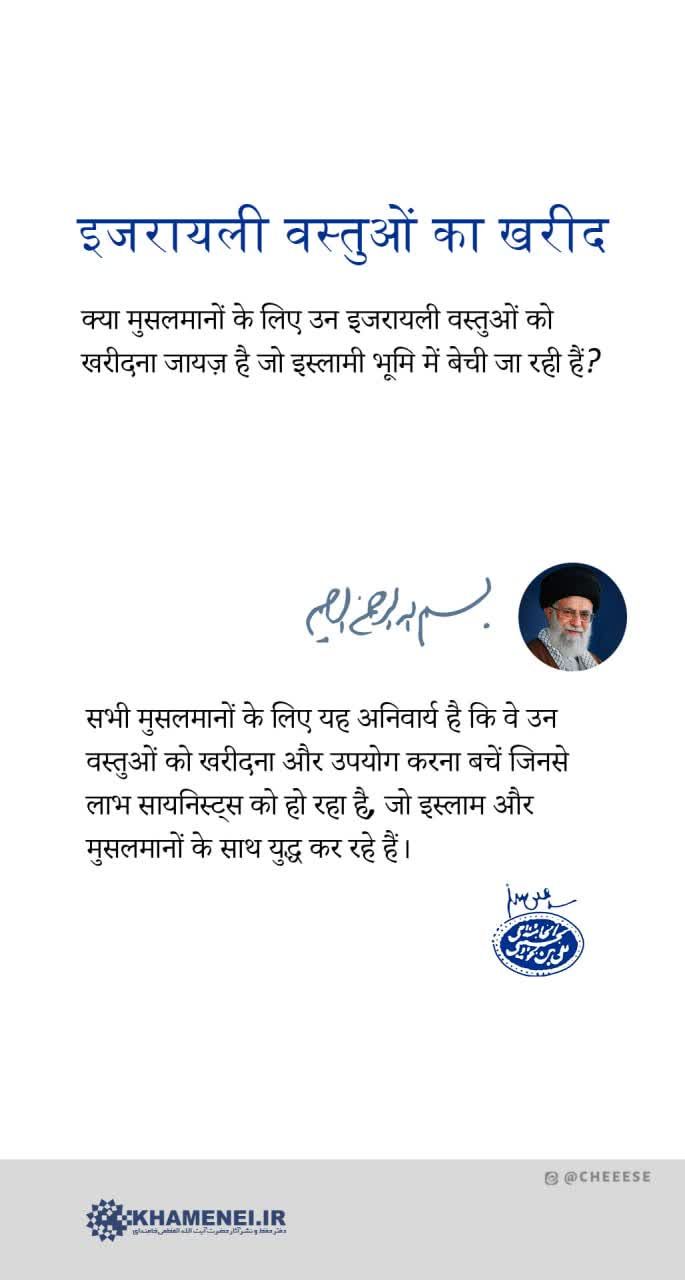 इजरायली वस्तुओं का खरीद
क्या मुसलमानों के लिए उन इजरायली वस्तुओं को
खरीदना जायज़ है जो इस्लामी भूमि में बेची जा रही हैं?
بسم الله الرحمن الرحیم
सभी मुसलमानों के लिए यह अनिवार्य है कि वे उन
वस्तुओं को खरीदना और उपयोग करना बचें जिनसे
लाभ सायनिस्ट्स को हो रहा है, जो इस्लाम और
मुसलमानों के साथ युद्ध कर रहे हैं।
@CHEEESE
KHAMENEI.IR
دفتر حفظ و نشر آثار حضرت آیت الله العظمی خامنه‌ای